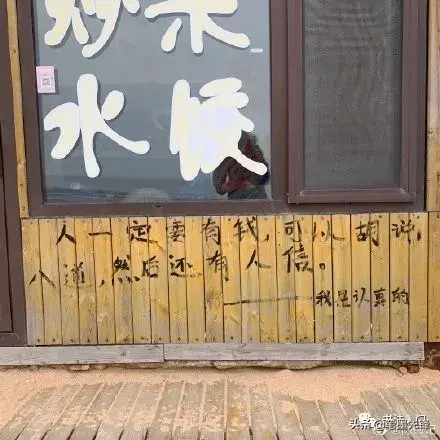 炒菜
水饺
人一定要有钱,可以胡说
八道,然后还有人信。
——我是认真的
头条